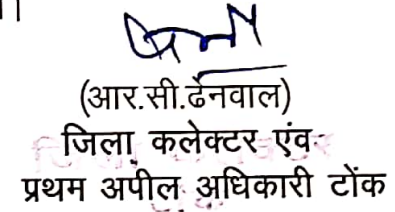 (आर.सी.ढेनवाल)
जिला कलेक्टर एंव
प्रथम अपील अधिकारी टोंक